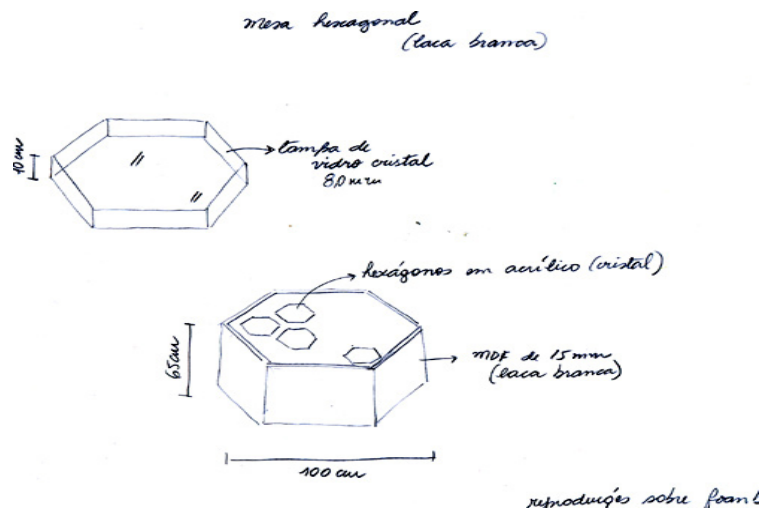 mesa hexagonal
(laca branca)
10cm
tampa de
vidro cristal
8,0mm
hexágonos em acrílico (cristal)
65cm
MDF de 15mm
(laca branca)
100cm
reproduções sobre foamb